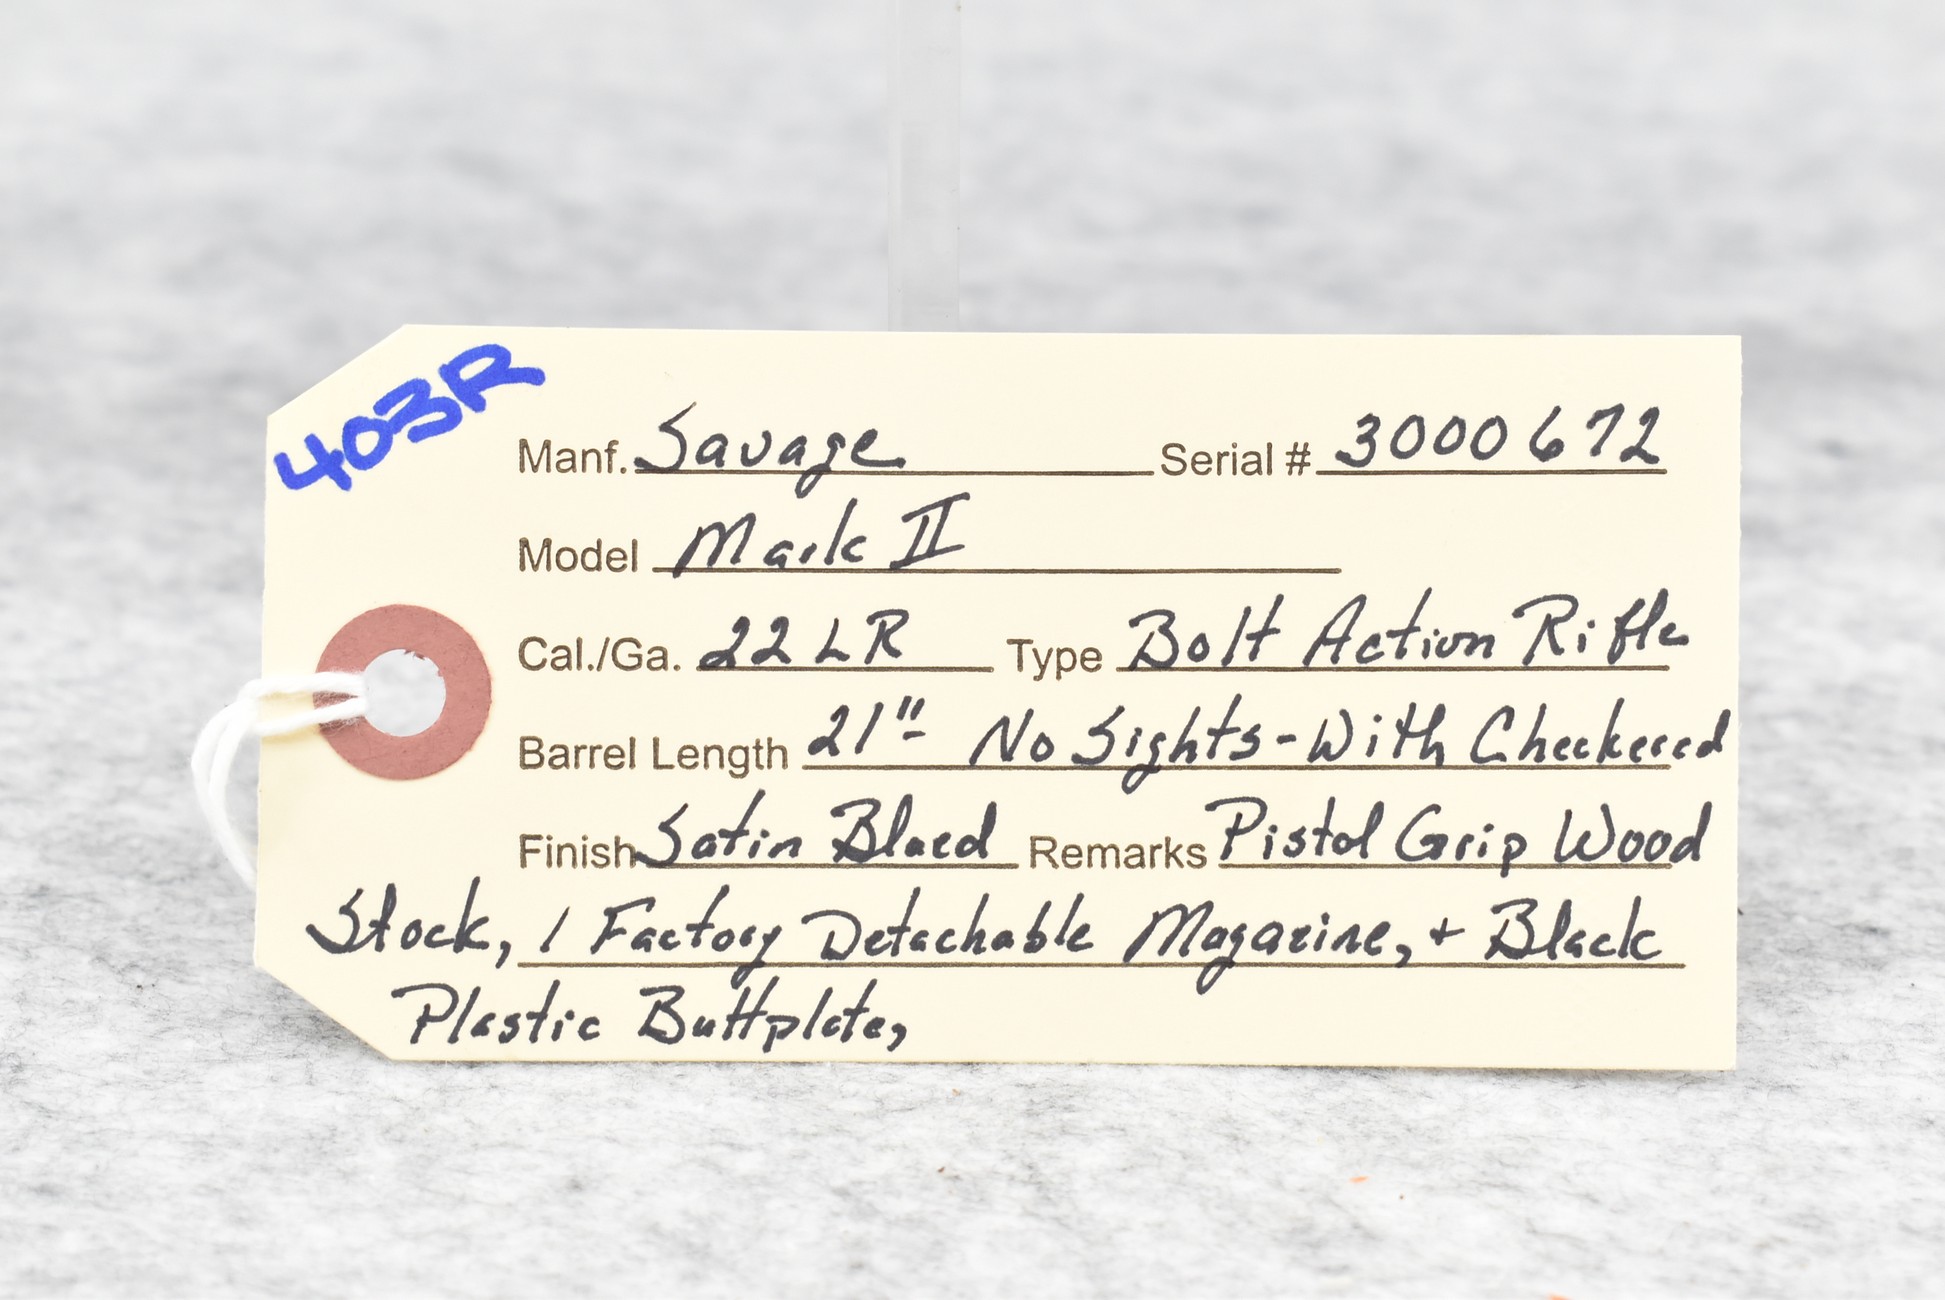 403R
Manf. Savage Serial # 3000672
Model Mark II
Cal./Ga. 22 LR Type Bolt Action Rifle
Barrel Length 21" No Sights-With Checkered
Finish Satin Blued Remarks Pistol Grip Wood
Stock, 1 Factory Detachable Magazine, + Black
Plastic Buttplate,